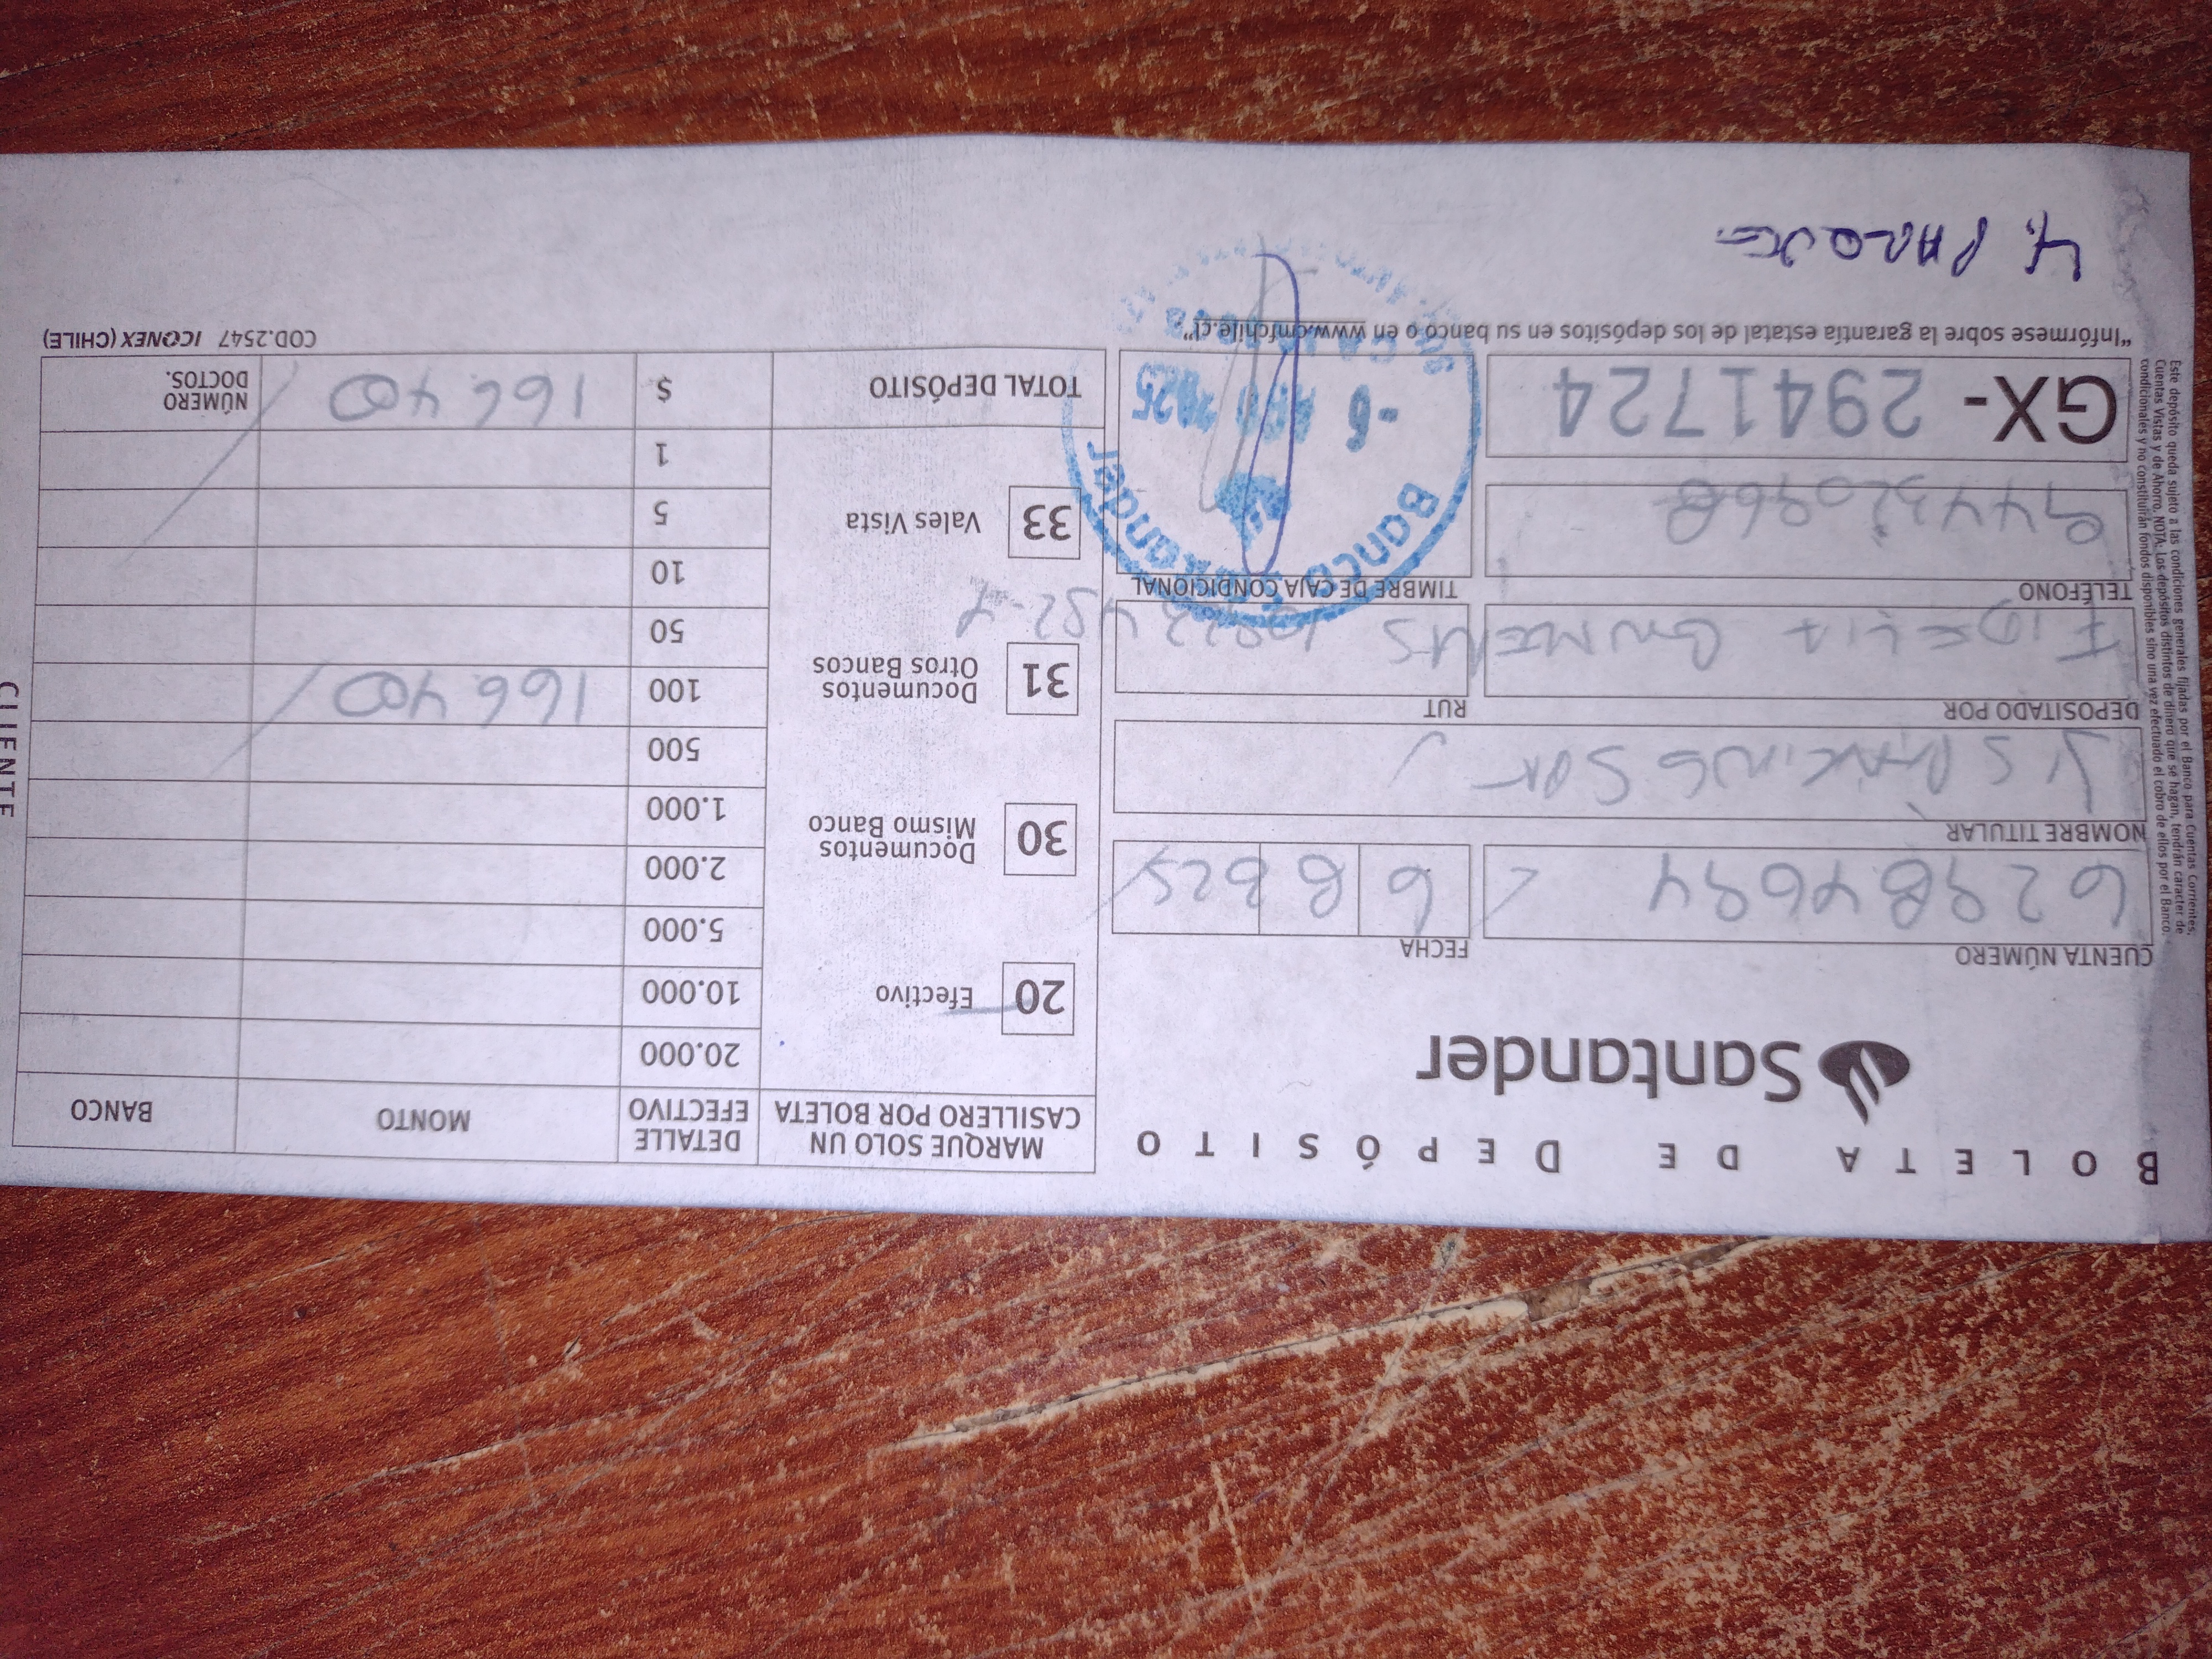 BOLETA DE DEPÓSITO
Santander
CUENTA NÚMERO
FECHA
6 8
NOMBRE TITULAR
PARKING SPA
DEPOSITADO POR
RUT
FIDELIA
TELÉFONO
TIMBRE DE CAJA CONDICIONAL
GX- 2941724
Banco Santander
- 6 AGO 2025
CAJERO
"Infórmese sobre la garantía estatal de los depósitos en su banco o en www.cmfchile.cl".
MARQUE SOLO UN CASILLERO POR BOLETA
DETALLE EFECTIVO
MONTO
BANCO
20 Efectivo
30 Documentos Mismo Banco
31 Documentos Otros Bancos
33 Vales Vista
20.000
10.000
5.000
2.000
1.000
500
100 166.400
50
10
5
1
TOTAL DEPÓSITO $ 166.400
NÚMERO DOCTOS.
COD.2547 ICONEX (CHILE)
CLIENTE
Este depósito queda sujeto a las condiciones generales fijadas por el Banco para Cuentas Corrientes,
Cuentas Vistas y de Ahorro. NOTA: Los depósitos distintos de dinero que se hagan, tendrán caracter de
condicionales y no constituirán fondos disponibles sino una vez efectuado el cobro de ellos por el Banco.